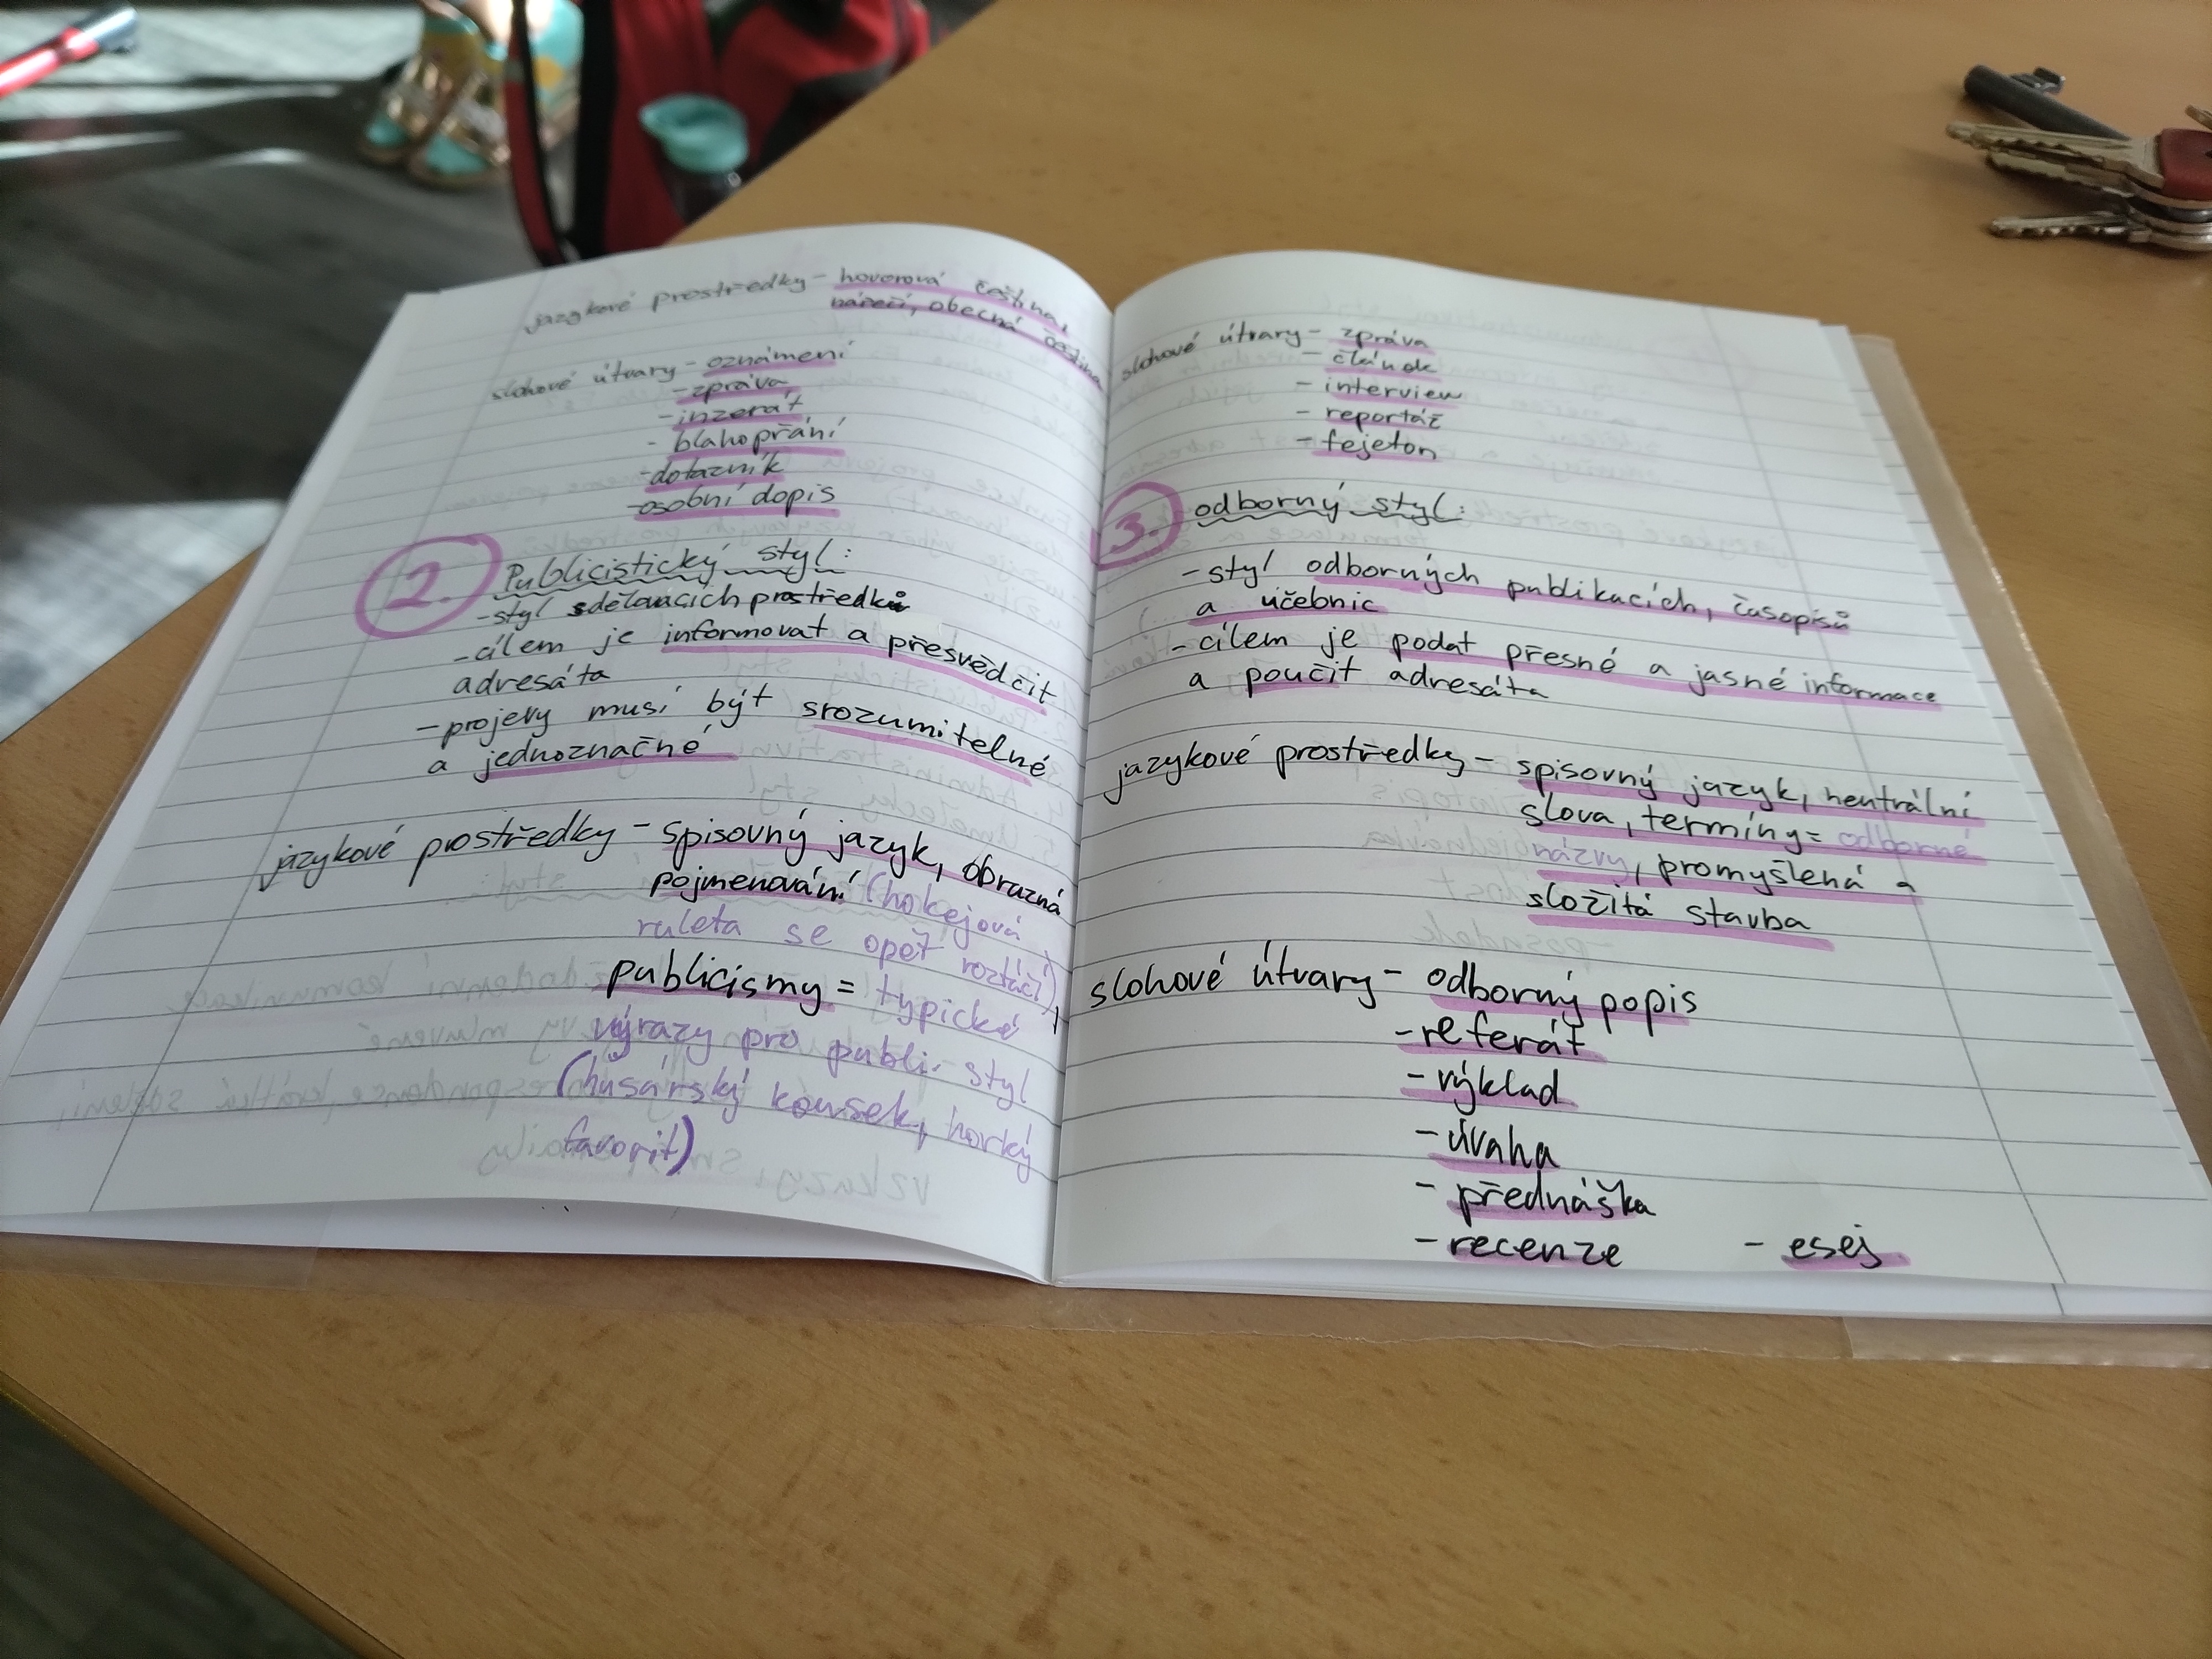 jazykové prostředky - hovorová čeština,
nářečí, obecná čeština
slohové útvary - oznámení
- zpráva
- inzerát
- blahopřání
- dotazník
- osobní dopis
2. Publicistický styl:
- styl sdělovacích prostředků
- cílem je informovat a přesvědčit
adresáta
- projevy musí být srozumitelné
a jednoznačné
jazykové prostředky - spisovný jazyk, obrazná
pojmenování (hokejová
ruleta se opět roztáčí),
publicismy = typické
výrazy pro publi. styl
(husárský kousek, horký
favorit)
slohové útvary - zpráva
- článek
- interview
- reportáž
- fejeton
3. odborný styl:
- styl odborných publikacích, časopisů
a učebnic
- cílem je podat přesné a jasné informace
a poučit adresáta
jazykové prostředky - spisovný jazyk, neutrální
slova, termíny = odborné
názvy, promyšlená a
složitá stavba
slohové útvary - odborný popis
- referát
- výklad
- úvaha
- přednáška
- recenze - esej